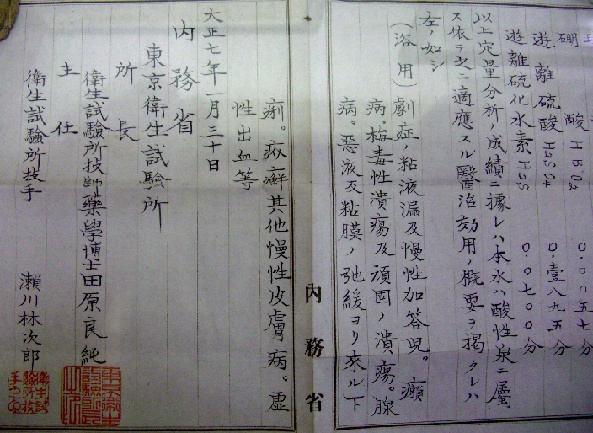 硼酸 HBO₂ 〇.〇〇五十分
遊離硫酸 H₂SO₄ 〇.壹八九五分
遊離硫化水素 H₂S 〇.〇七〇〇分
以上定量分析ノ成績ニ據レハ本水ハ酸性泉ニ屬
ス依ラ之ニ適應スル醫治効用ノ概要ヲ掲クレハ
左ノ如シ
(浴用)劇症ノ粘液漏及慢性加答児。癩
病。梅毒性潰瘍及頑固ノ潰瘍。腺
病。惡液又粘膜ノ弛緩ヨリ來ル下
内務省
痢。疥癬其他慢性皮膚病。虚
性出血等
大正七年一月三十日
内務省
東京衛生試驗所
所長
衛生試驗所技師藥學博士田原良純
主任
衛生試驗所技手 瀬川林次郎